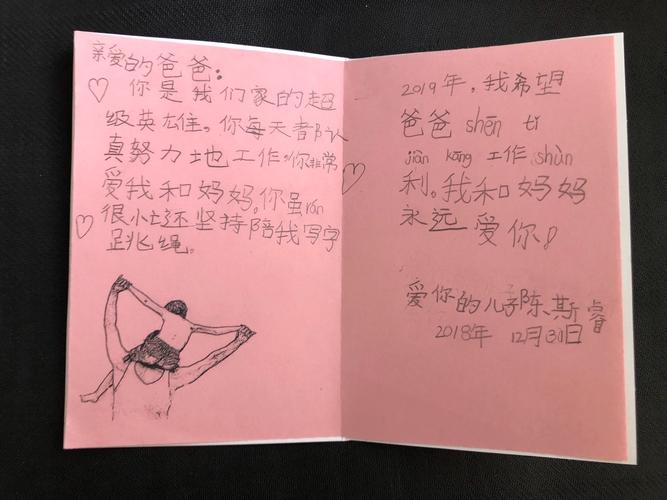 亲爱的爸爸:
你是我们家的超
级英雄。你每天都认
真努力地工作。你非常
爱我和妈妈。你虽rán
很忙还坚持陪我写字
跳绳。
2019年,我希望
爸爸 shēn tǐ
jiàn kāng 工作 shùn
利。我和妈妈
永远爱你!
爱你的儿子陈斯睿
2018年 12月30日